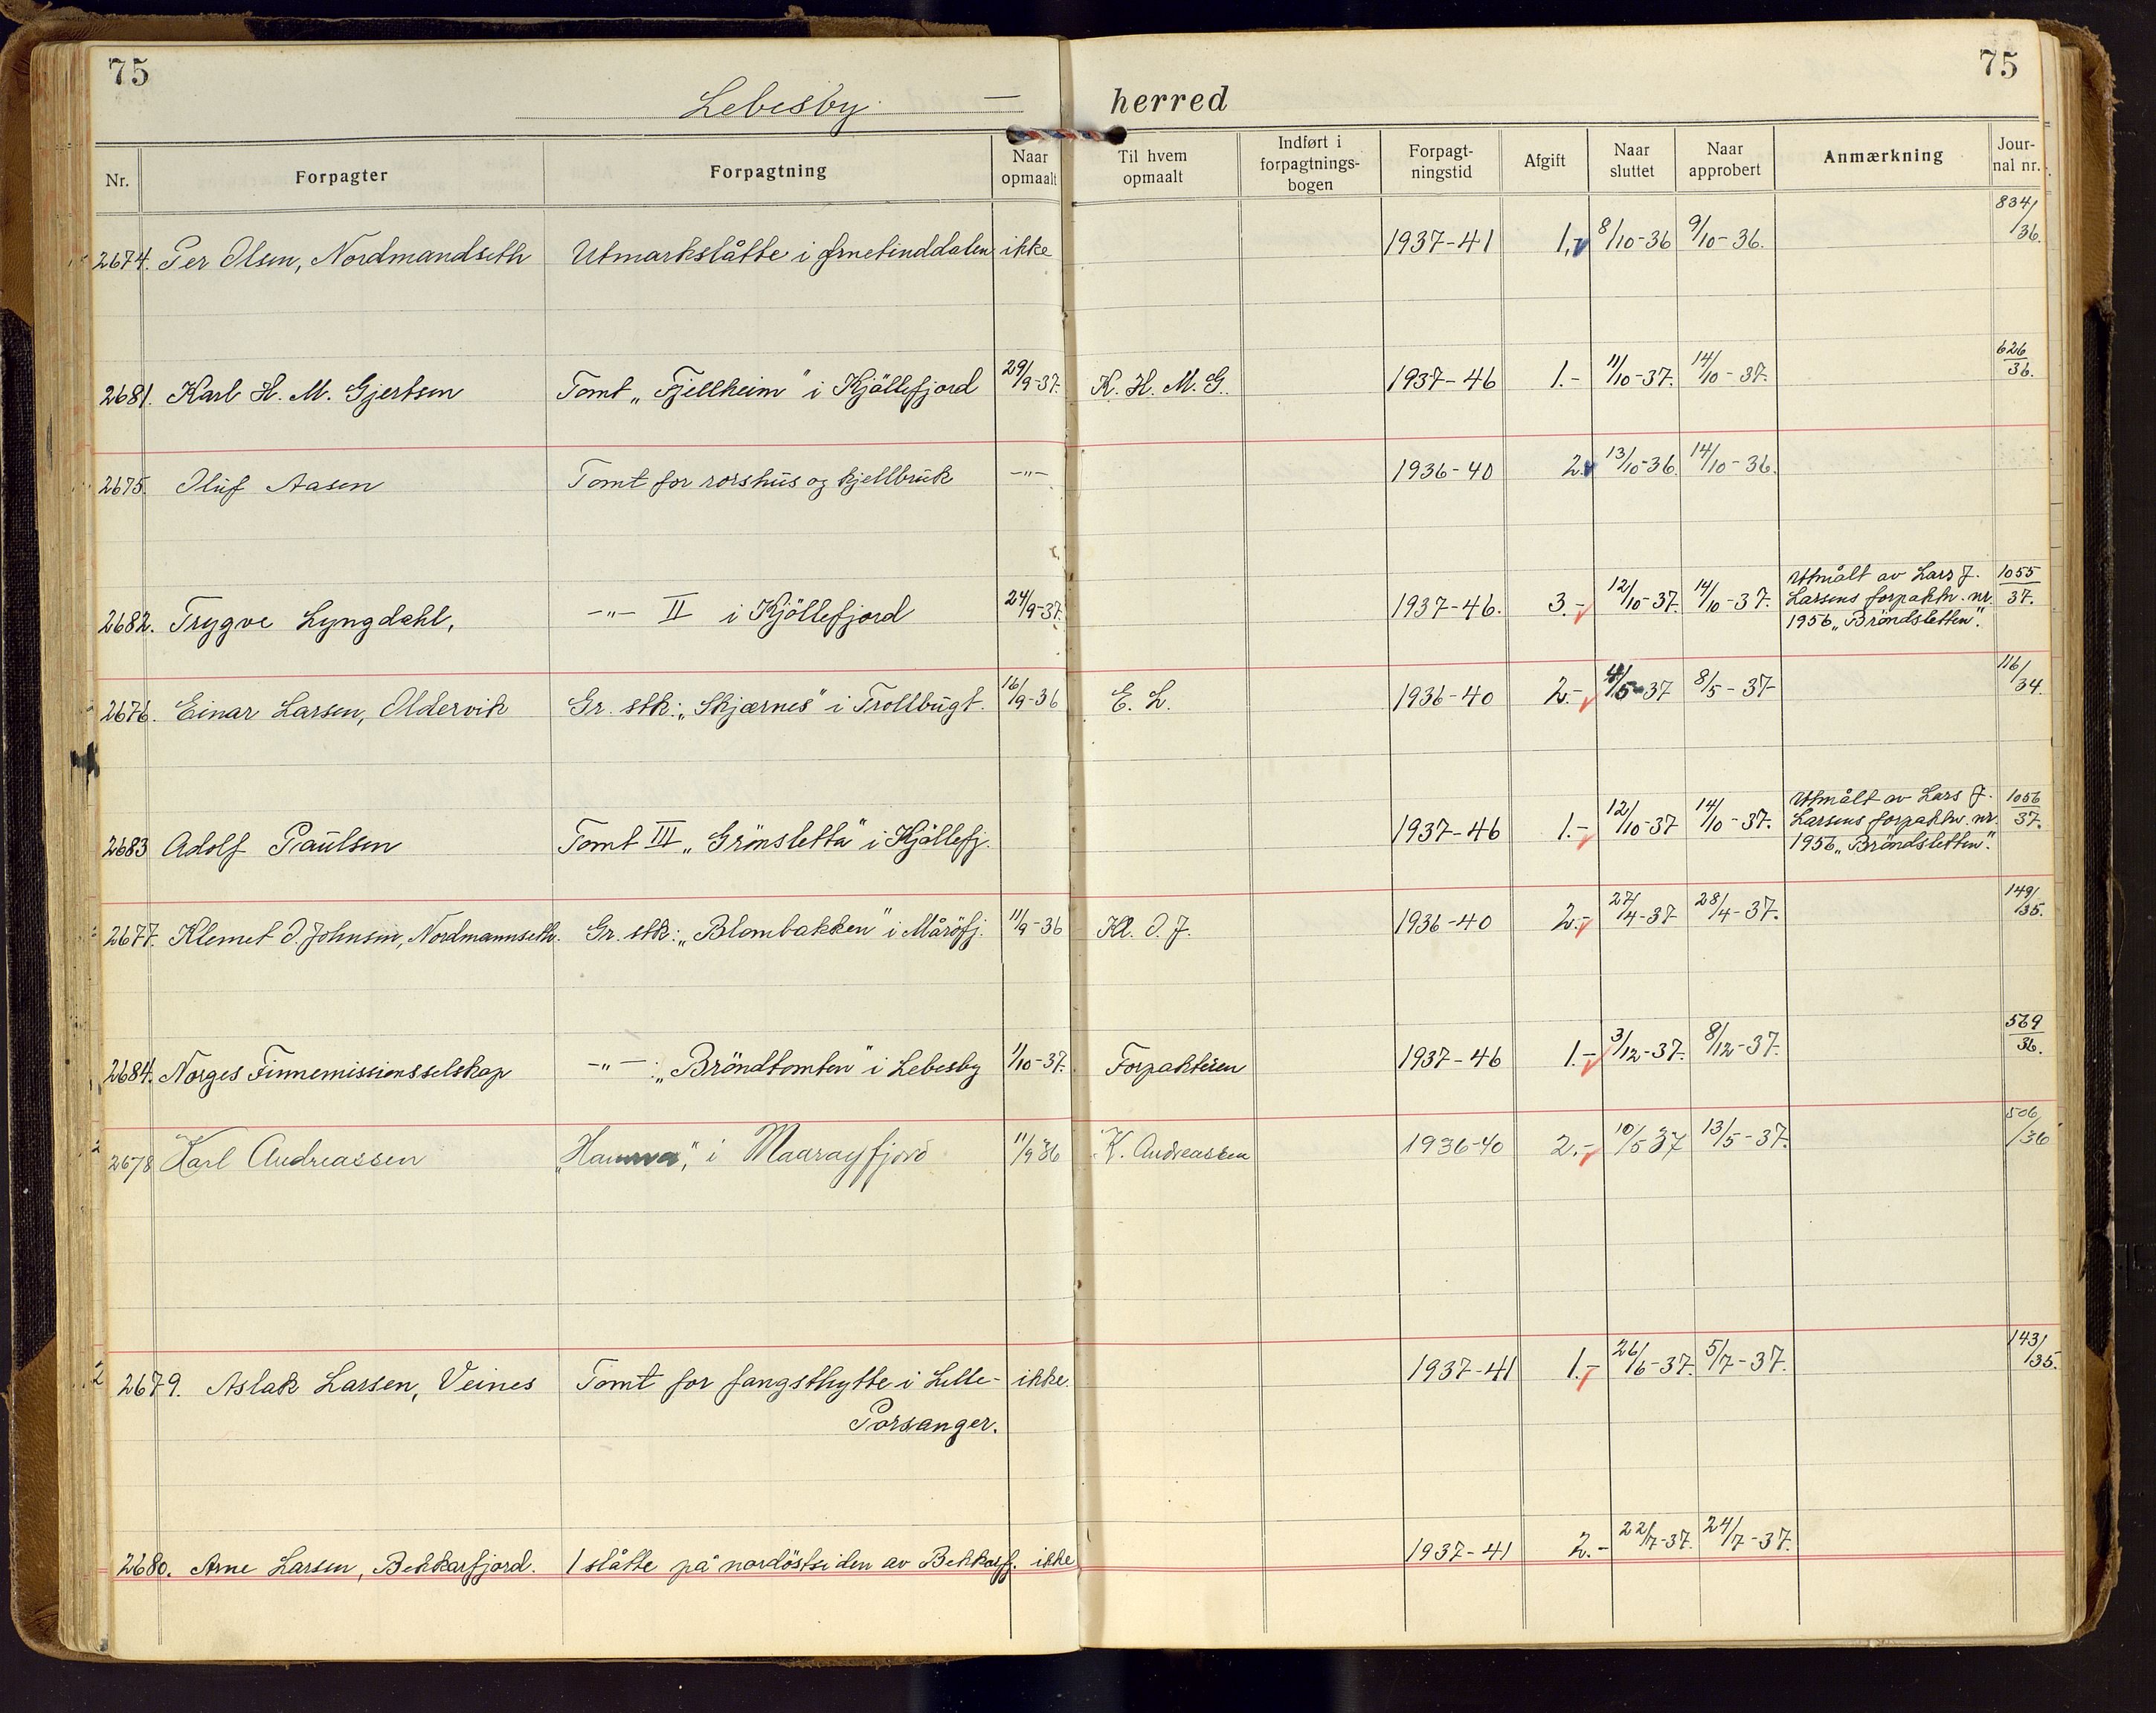 75
75
Lebesby — herred
Nr. Forpagter Forpagtning Naar opmaalt Til hvem opmaalt Indført i forpagtnings-bogen Forpagt-ningstid Afgift Naar sluttet Naar approbert Anmærkning Jour-nal nr.
2674. Per Olsen, Nordmandseth Utmarkslåtte i ikke 1937-41 1,- 8/10-36 9/10-36. 834/36.
2681. Karl H. M. Gjertsen Tomt „Fjellheim" i Kjöllefjord 29/9-37. K. H. M. G. 1937-46 1.- 11/10-37. 14/10-37. 626/36.
2675. Oluf Aasen Tomt for rorshus og kjellbruk -"- 1936-40 2. 13/10-36. 14/10-36.
2682. Trygve Lyngdahl, -"- II i Kjöllefjord 24/9-37. 1937-46. 3.- 12/10-37. 14/10-37. Utmålt av Lars J. 1055/37.
Larsens forpaktn. nr.
1956 „Bröndsletten".
2676. Einar Larsen, Oldervik Gr. stk: „Skjærnes" i Trollbugt. 16/9-36 E. L. 1936-40 2.- 4/5-37 8/5-37- 116/34.
2683 Adolf Paulsen Tomt III „Grönsletta" i Kjöllefj. 1937-46 1.- 12/10-37 14/10-37. Utmålt av Lars J. 1056/37.
Larsens forpaktn. nr.
1956 „Bröndsletten".
2677. Klemet O. Johnsen, Nordmannseth. Gr. stk: „Blombakken" i Måröfj. 11/9-36 Kl. O. J. 1936-40 2.- 27/4-37 28/4-37. 149/35.
2684. Norges Finnemissionsselskap -"-: „Bröndtomten" i Lebesby 1/10-37. Forpakteren 1937-46 1.- 3/12-37. 8/12-37. 569/36.
2678 Karl Andreassen i Maarayfjord 11/9 36 K. Andreassen 1936-40 2.- 10/5 37 13/5-37. 506/36
2679. Aslak Larsen, Veines Tomt for fangsthytte i Lille- ikke. 1937-41 1.- 26/6-37. 5/7-37. 143/35.
Porsanger.
2680. Arne Larsen, Bekkarfjord. 1 slåtte på nordöstsiden av Bekkarfj. ikke 1937-41 2.- 22/7-37. 24/7-37.